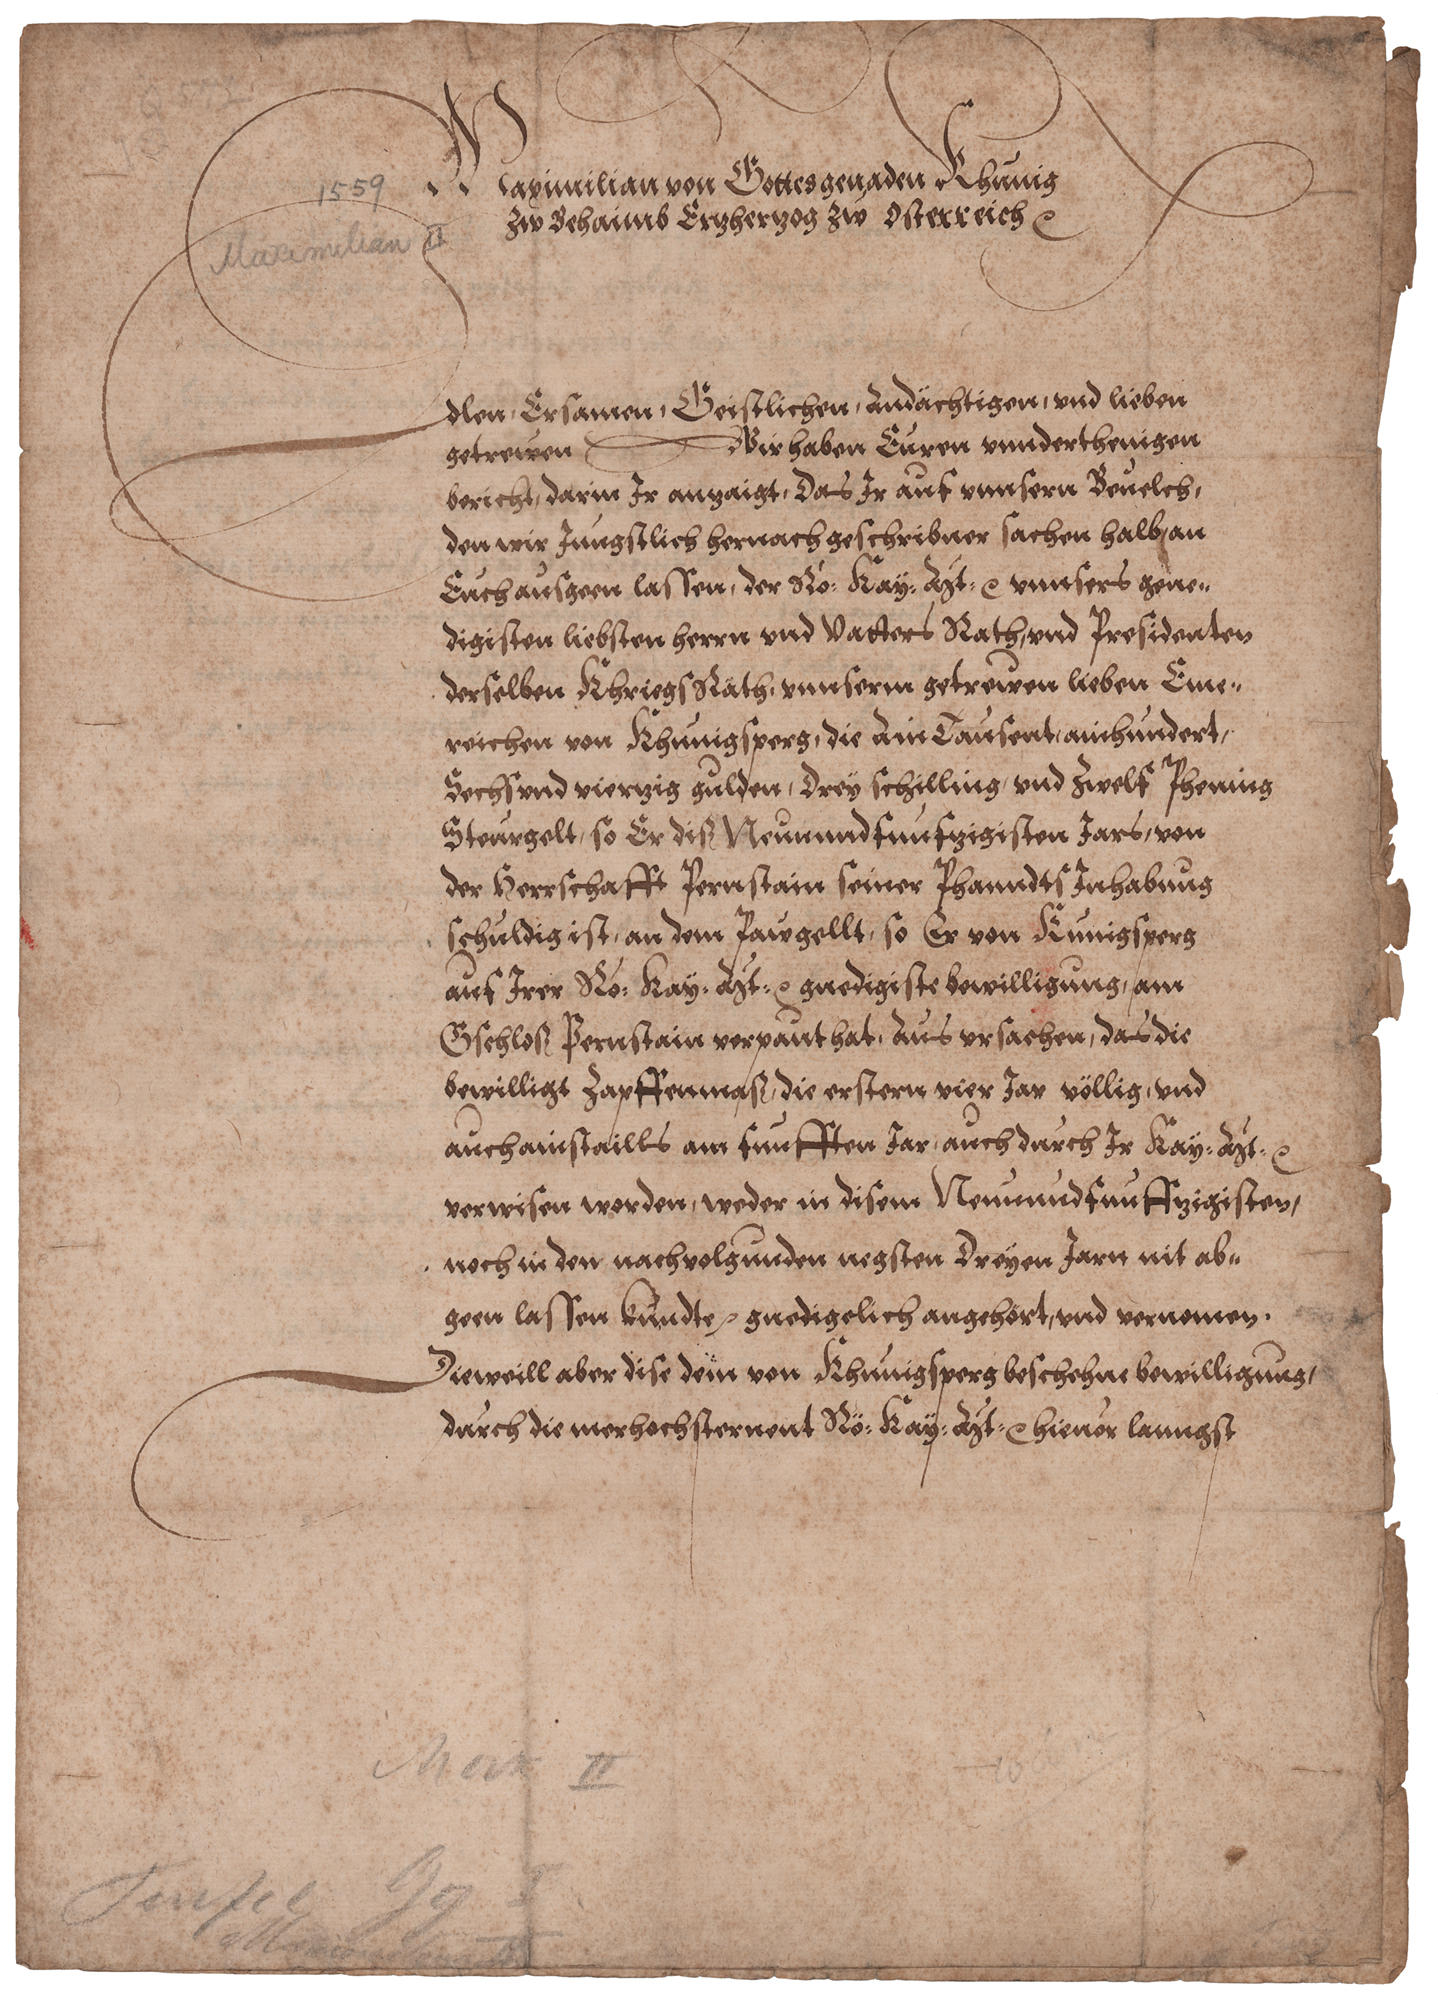 Maximilian von Gottes genaden Khunig
Zw Behaimb Ertzhertzog Zw Osterreich
1559
Maximilian II
Edlen, Ersamen, Geistlichen, Andächtigen, vnd lieben
getrewen Wir haben Euren vnnderthenigen
bericht, darin Ir anzaigt, Das Ir auf vnnsern Beuelch,
den wir Jungstlich hernach geschribner sachen halb, an
Euch ausgeen lassen, der Rö: Kay: Mt: vnnsers gene-
digisten liebsten herrn vnd Vatters Rath, vnd Presidenten
derselben KhriegsRäth, vnnserm getrewen lieben Eme-
reichen von Khunigsperg, die Ain Tausent, ainhundert,
Sechsvnd viertzig gulden, Drey schilling, vnd Zwelf Phening
Steurgelt, so Er diß Neunundfunfzigisten Jars, von
der Herrschafft Pernstain seiner Phanndts Inhabung
schuldig ist, an dem Pawgellt, so Er von Kunigsperg
auf Irer Rö: Kay: Mt: gnedigiste bewilligung, am
Gschloß Pernstain verpaut hat, Aus vrsachen, das die
bewilligt Zapffenmaß, die erstern vier Jar völlig, vnd
auch ainstaills am funfften Jar, auch durch Ir Kay: Mt:
verwisen werden, weder in disem Neunundfunffzigisten,
noch in den nachvolgunden negsten Dreyen Jarn nit ab-
geen lassen kundte, gnedigelich angehört, vnd vernomen.
Dieweill aber dise dem von Khunigsperg beschehne bewilligung,
durch die merhochsternent Rö: Kay: Mt: hieuor lanngst
Max II
Teufel Jg I